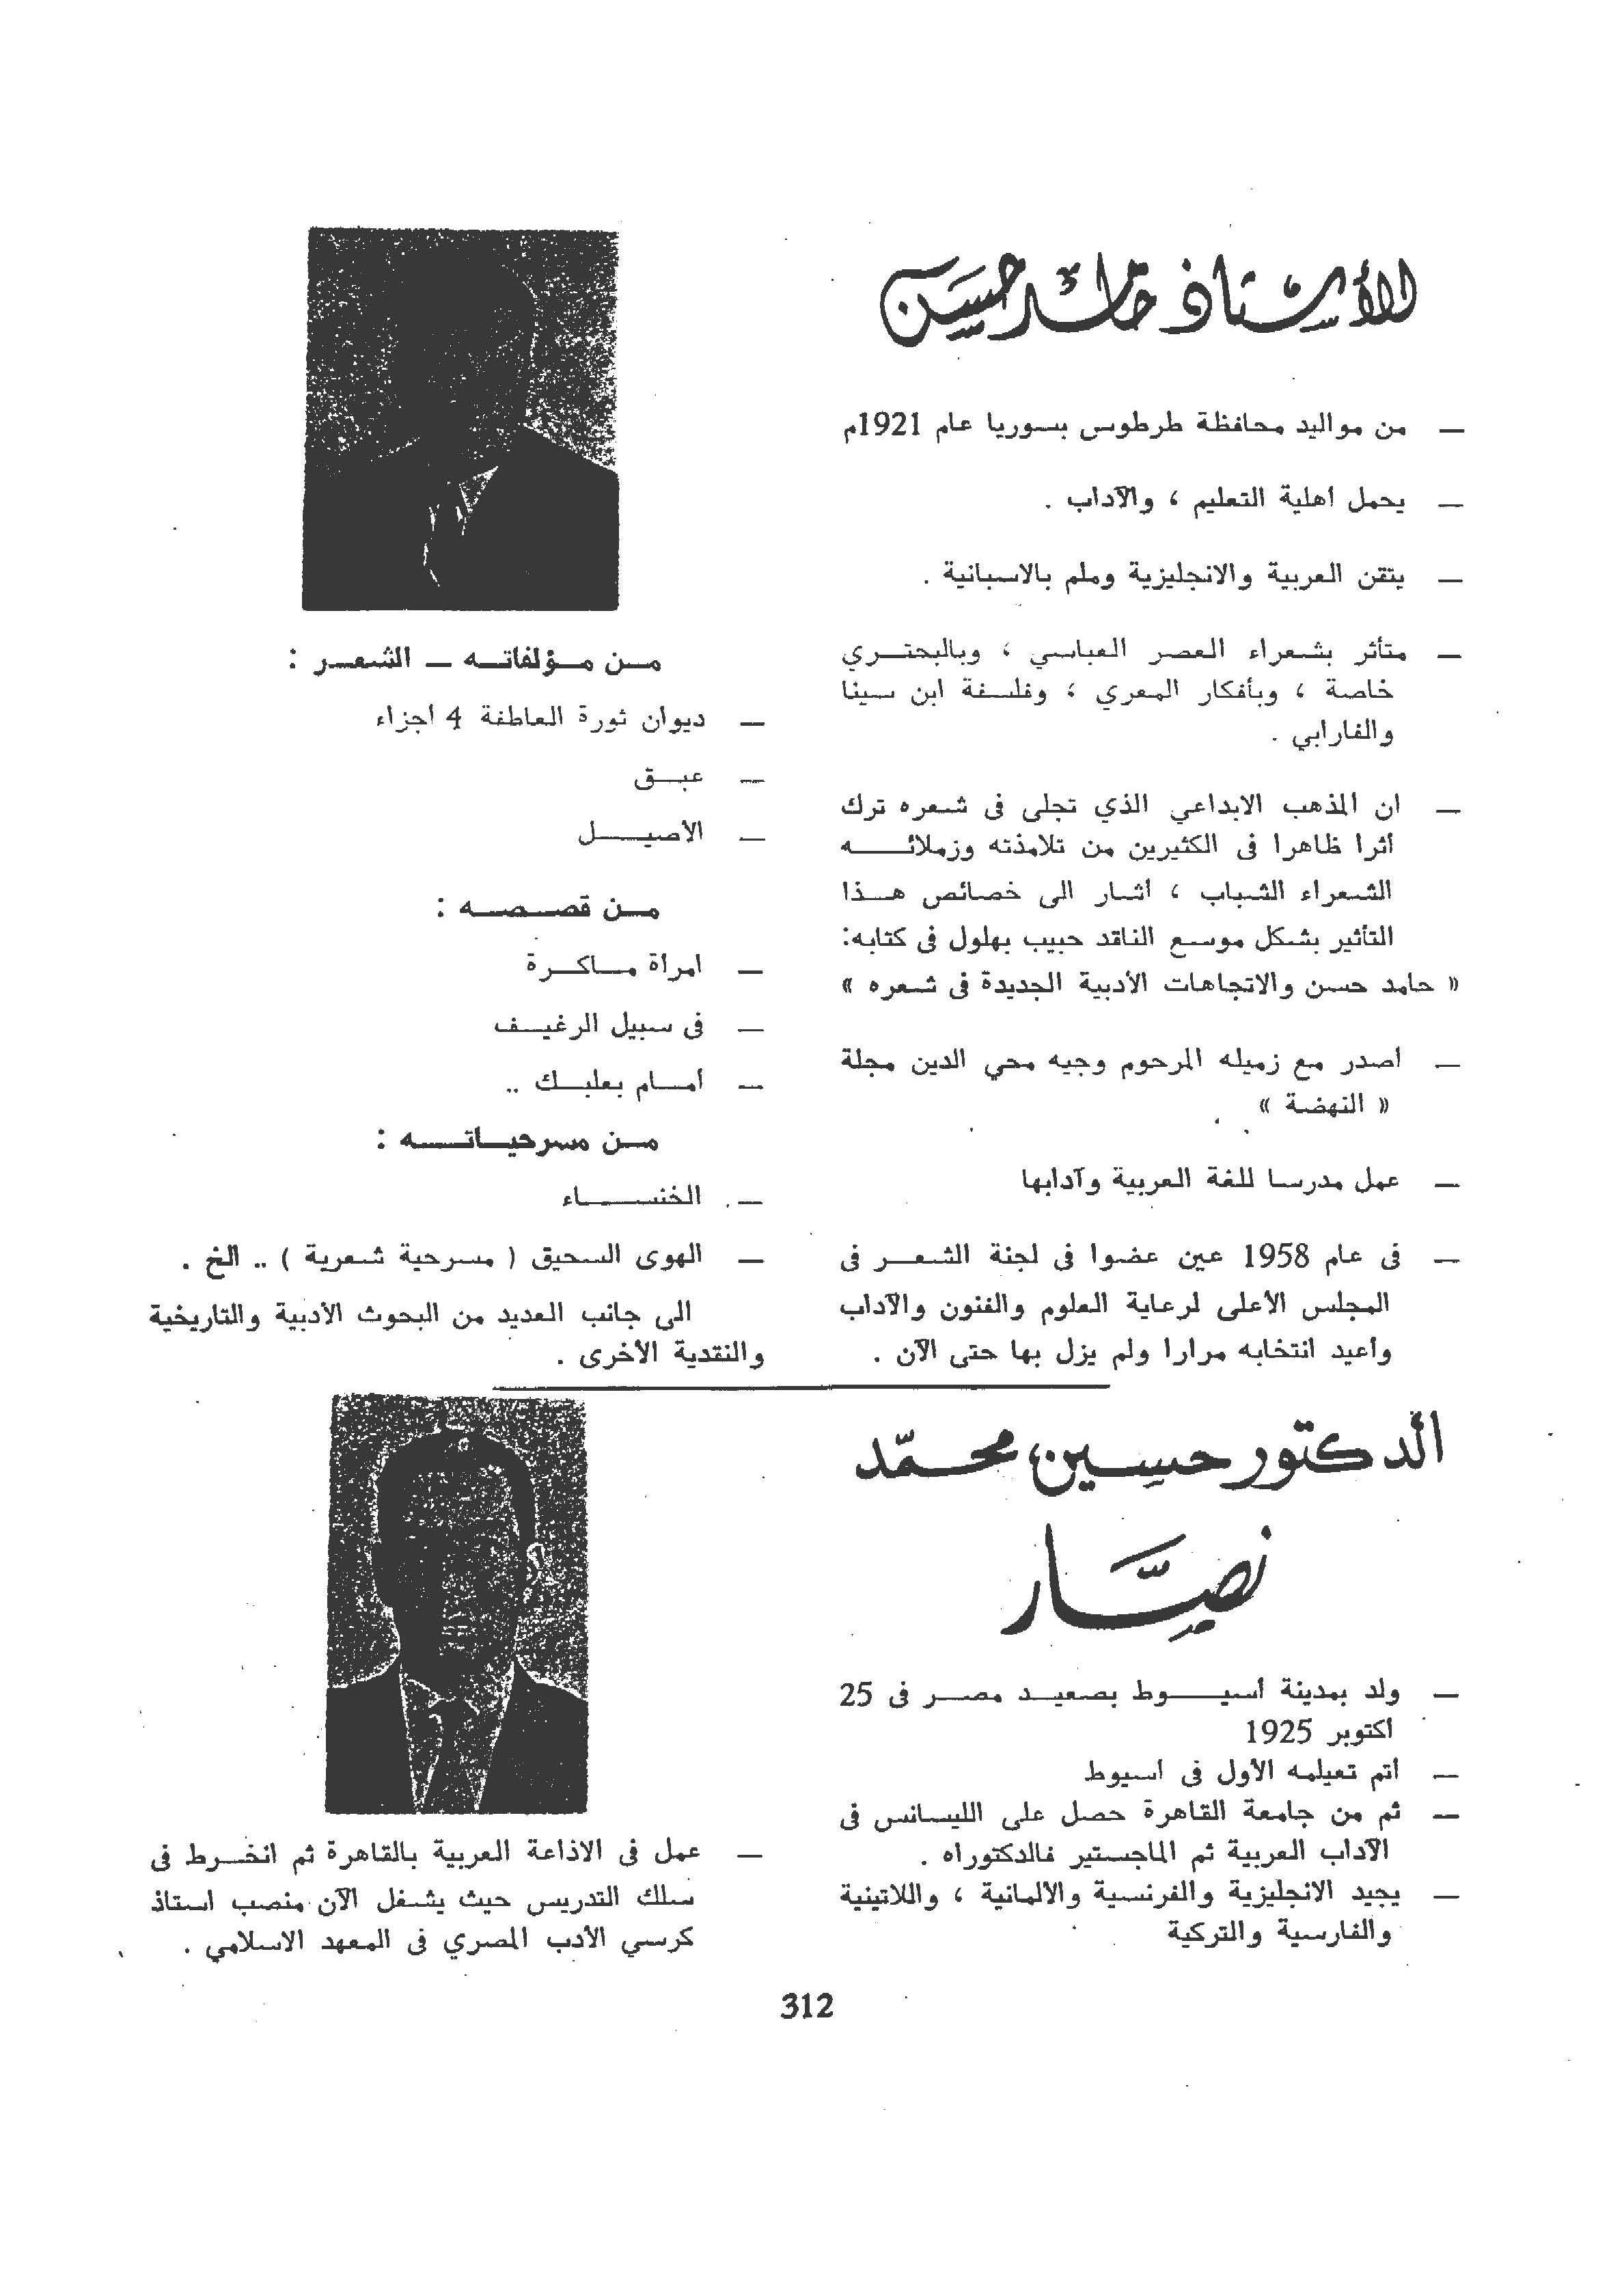 الأستاذ حامد حسن
— من مواليد محافظة طرطوس بسوريا عام 1921م
— يحمل أهلية التعليم ، والآداب .
— يتقن العربية والانجليزية وملم بالاسبانية .
— متأثر بشعراء العصر العباسي ، وبالبحتري
خاصة ، وبأفكار المعري ، وفلسفة ابن سينا
والفارابي .
— ان المذهب الابداعي الذي تجلى فى شعره ترك
أثرا ظاهرا فى الكثيرين من تلامذته وزملائه
الشعراء الشباب ، أشار الى خصائص هذا
التأثير بشكل موسع الناقد حبيب بهلول فى كتابه:
« حامد حسن والاتجاهات الأدبية الجديدة فى شعره »
— أصدر مع زميله المرحوم وجيه محي الدين مجلة
« النهضة »
— عمل مدرسا للغة العربية وآدابها
— فى عام 1958 عين عضوا فى لجنة الشعر فى
المجلس الأعلى لرعاية العلوم والفنون والآداب
وأعيد انتخابه مرارا ولم يزل بها حتى الآن .
من مؤلفاته — الشعر :
— ديوان ثورة العاطفة 4 أجزاء
— عبق
— الأصيل
من قصصه :
— امرأة ماكرة
— فى سبيل الرغيف
— أمام بعلبك ..
من مسرحياته :
— الخنساء
— الهوى السحيق ( مسرحية شعرية ) .. الخ .
الى جانب العديد من البحوث الأدبية والتاريخية
والنقدية الأخرى .
الدكتور حسين محمّد
نصّار
— ولد بمدينة أسيوط بصعيد مصر فى 25
أكتوبر 1925
— أتم تعيلمه الأول فى أسيوط
— ثم من جامعة القاهرة حصل على الليسانس فى
الآداب العربية ثم الماجستير فالدكتوراه .
— يجيد الانجليزية والفرنسية والألمانية ، واللاتينية
والفارسية والتركية
— عمل فى الاذاعة العربية بالقاهرة ثم انخرط فى
سلك التدريس حيث يشغل الآن منصب استاذ
كرسي الأدب المصري فى المعهد الاسلامي .
312